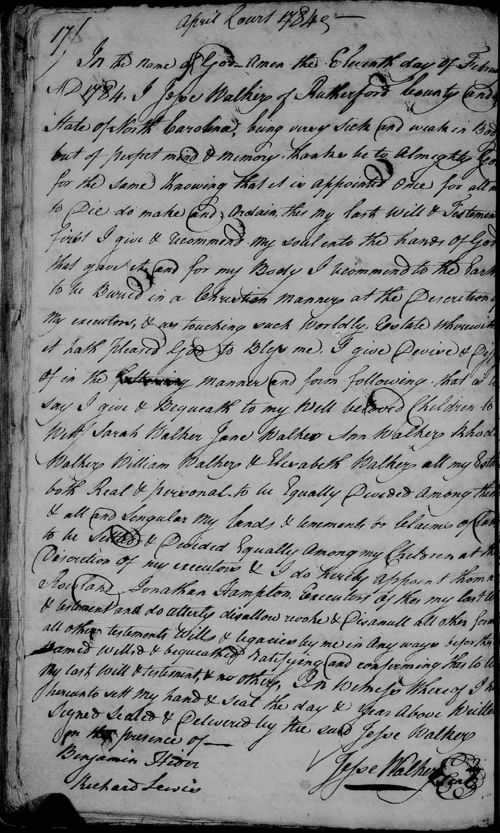 April Court 1784
171
In the name of God Amen the Eleventh day of Febru
AD 1784. I Jesse Walker of Rutherford County and
State of North Carolina, being very Sick and weak in Bo
but of perfect mind & memory, thanks be to Almighty God
for the same Knowing that it is appointed Once for all
to Die do make and ordain this my last Will & Testemen
first I give & recommend my soul into the hands of God
that gave it, and for my Body I recommend to the Earth
to be Buried in a Christian manner at the Discretion
my executors, & as touching such Worldly Estate wherewi
it hath pleased God to Bless me. I give Devise & Di
of in the manner and form following, that is
say I give & Bequeath to my Well beloved Children to
Witt, Sarah Walker Jane Walker Ann Walker Rhod
Walker William Walker & Elizabeth Walker all my Esta
both Real & personal to be Equally Divided among the
& all and singular my lands & tenements or Claims of Lan
to be & Devided Equally Among my Children at the
Discretion of my executors & I do hereby appoint Thoma
Rowland Jonathan Hampton, Executors of this my last W
& testament and do utterly disallow revoke & Disanull all other form
all other testaments Wills & legacies by me in Any ways before this
named Willed & bequeathed Ratifyeing and confirming this to be
my last Will & testement, & no other, In Witness Whereof I h
hereunto set my hand & Seal the day & Year Above Written
Signed Sealed & Delivered by the said Jesse Walker
in the presence of
Benjamin
Richard Lewis
Jesse Walker Seal